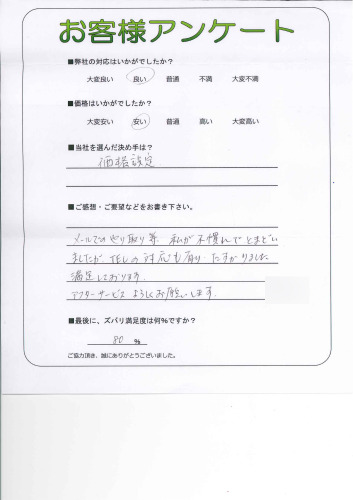 お客様アンケート
■弊社の対応はいかがでしたか？
大変良い 良い 普通 不満 大変不満
■価格はいかがでしたか？
大変安い 安い 普通 高い 大変高い
■当社を選んだ決め手は？
価格設定
■ご感想・ご要望などをお書き下さい。
メールでのやり取り等 私が不慣れでとまどい
ましたが、TELの対応も有り たすかりました
満足しております。
アフターサービス よろしくお願いします。
■最後に、ズバリ満足度は何％ですか？
80 ％
ご協力頂き、誠にありがとうございました。